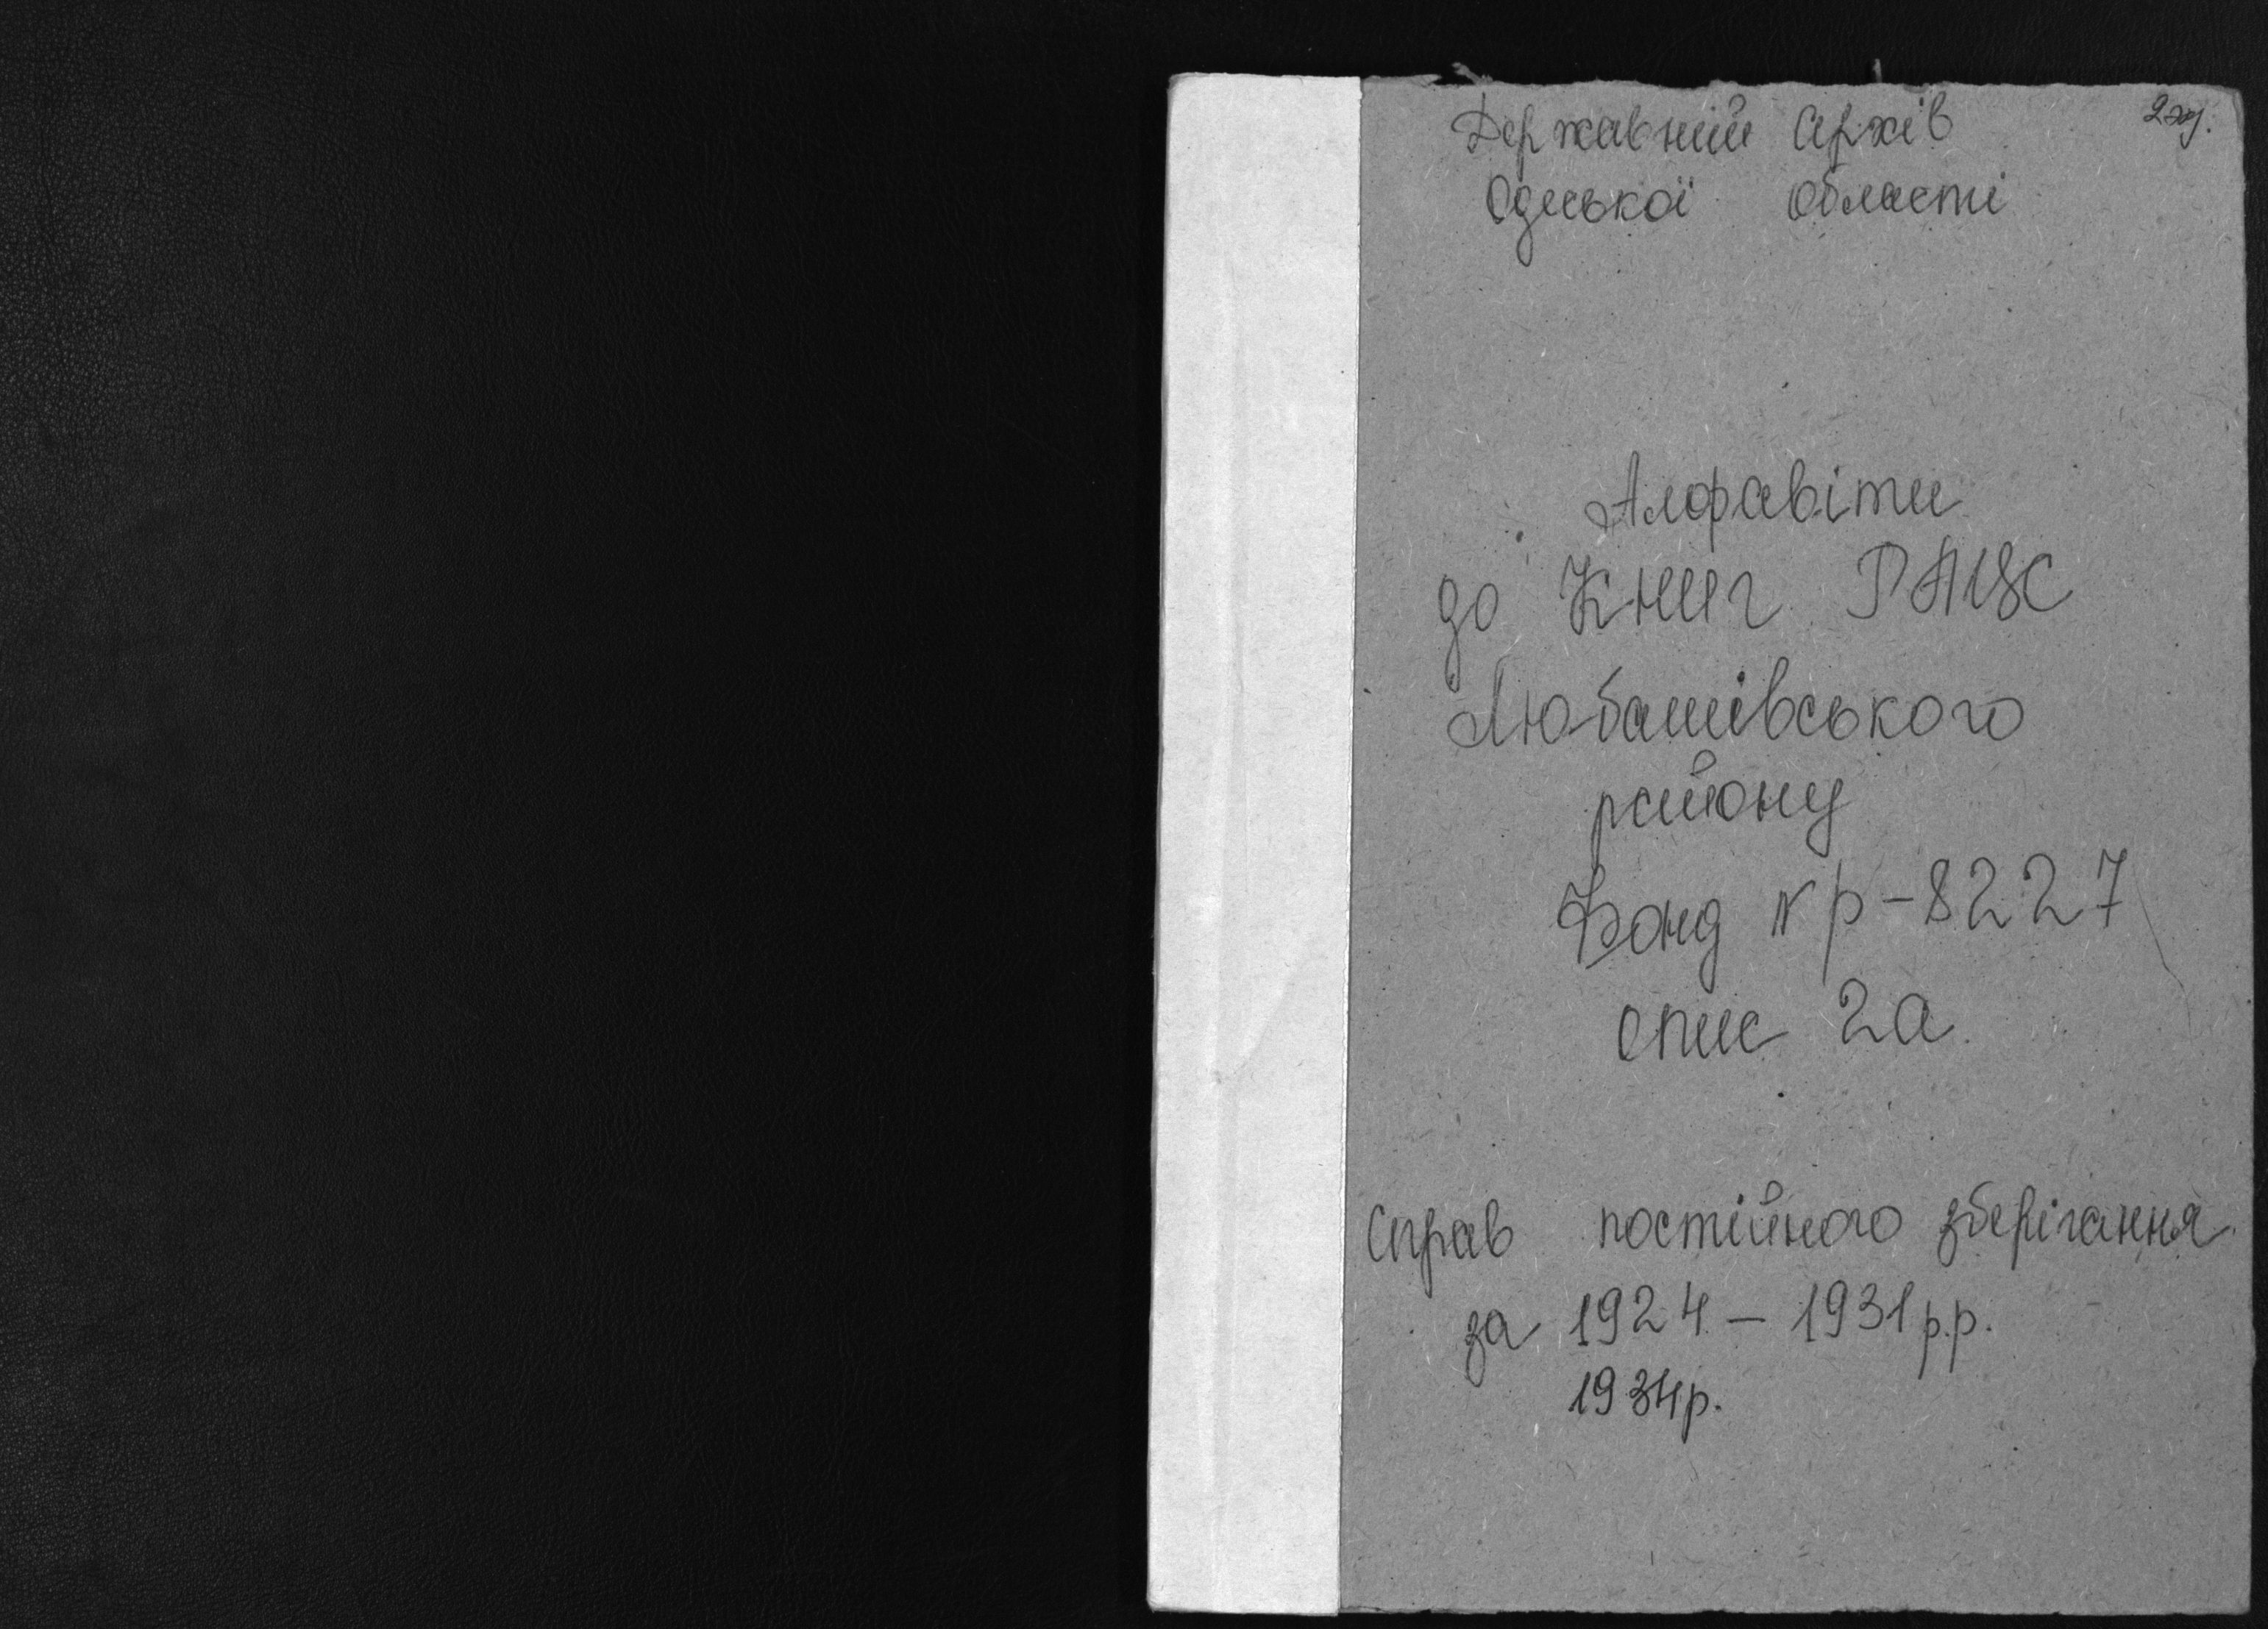 2эк.
Державний Архів
Одеської області
Алфавіти
до Книг РАЦС
Любашівського
району
Фонд № р-8227
опис 2а
Справ постійного зберігання
за 1924 – 1931 р.р.
1934р.